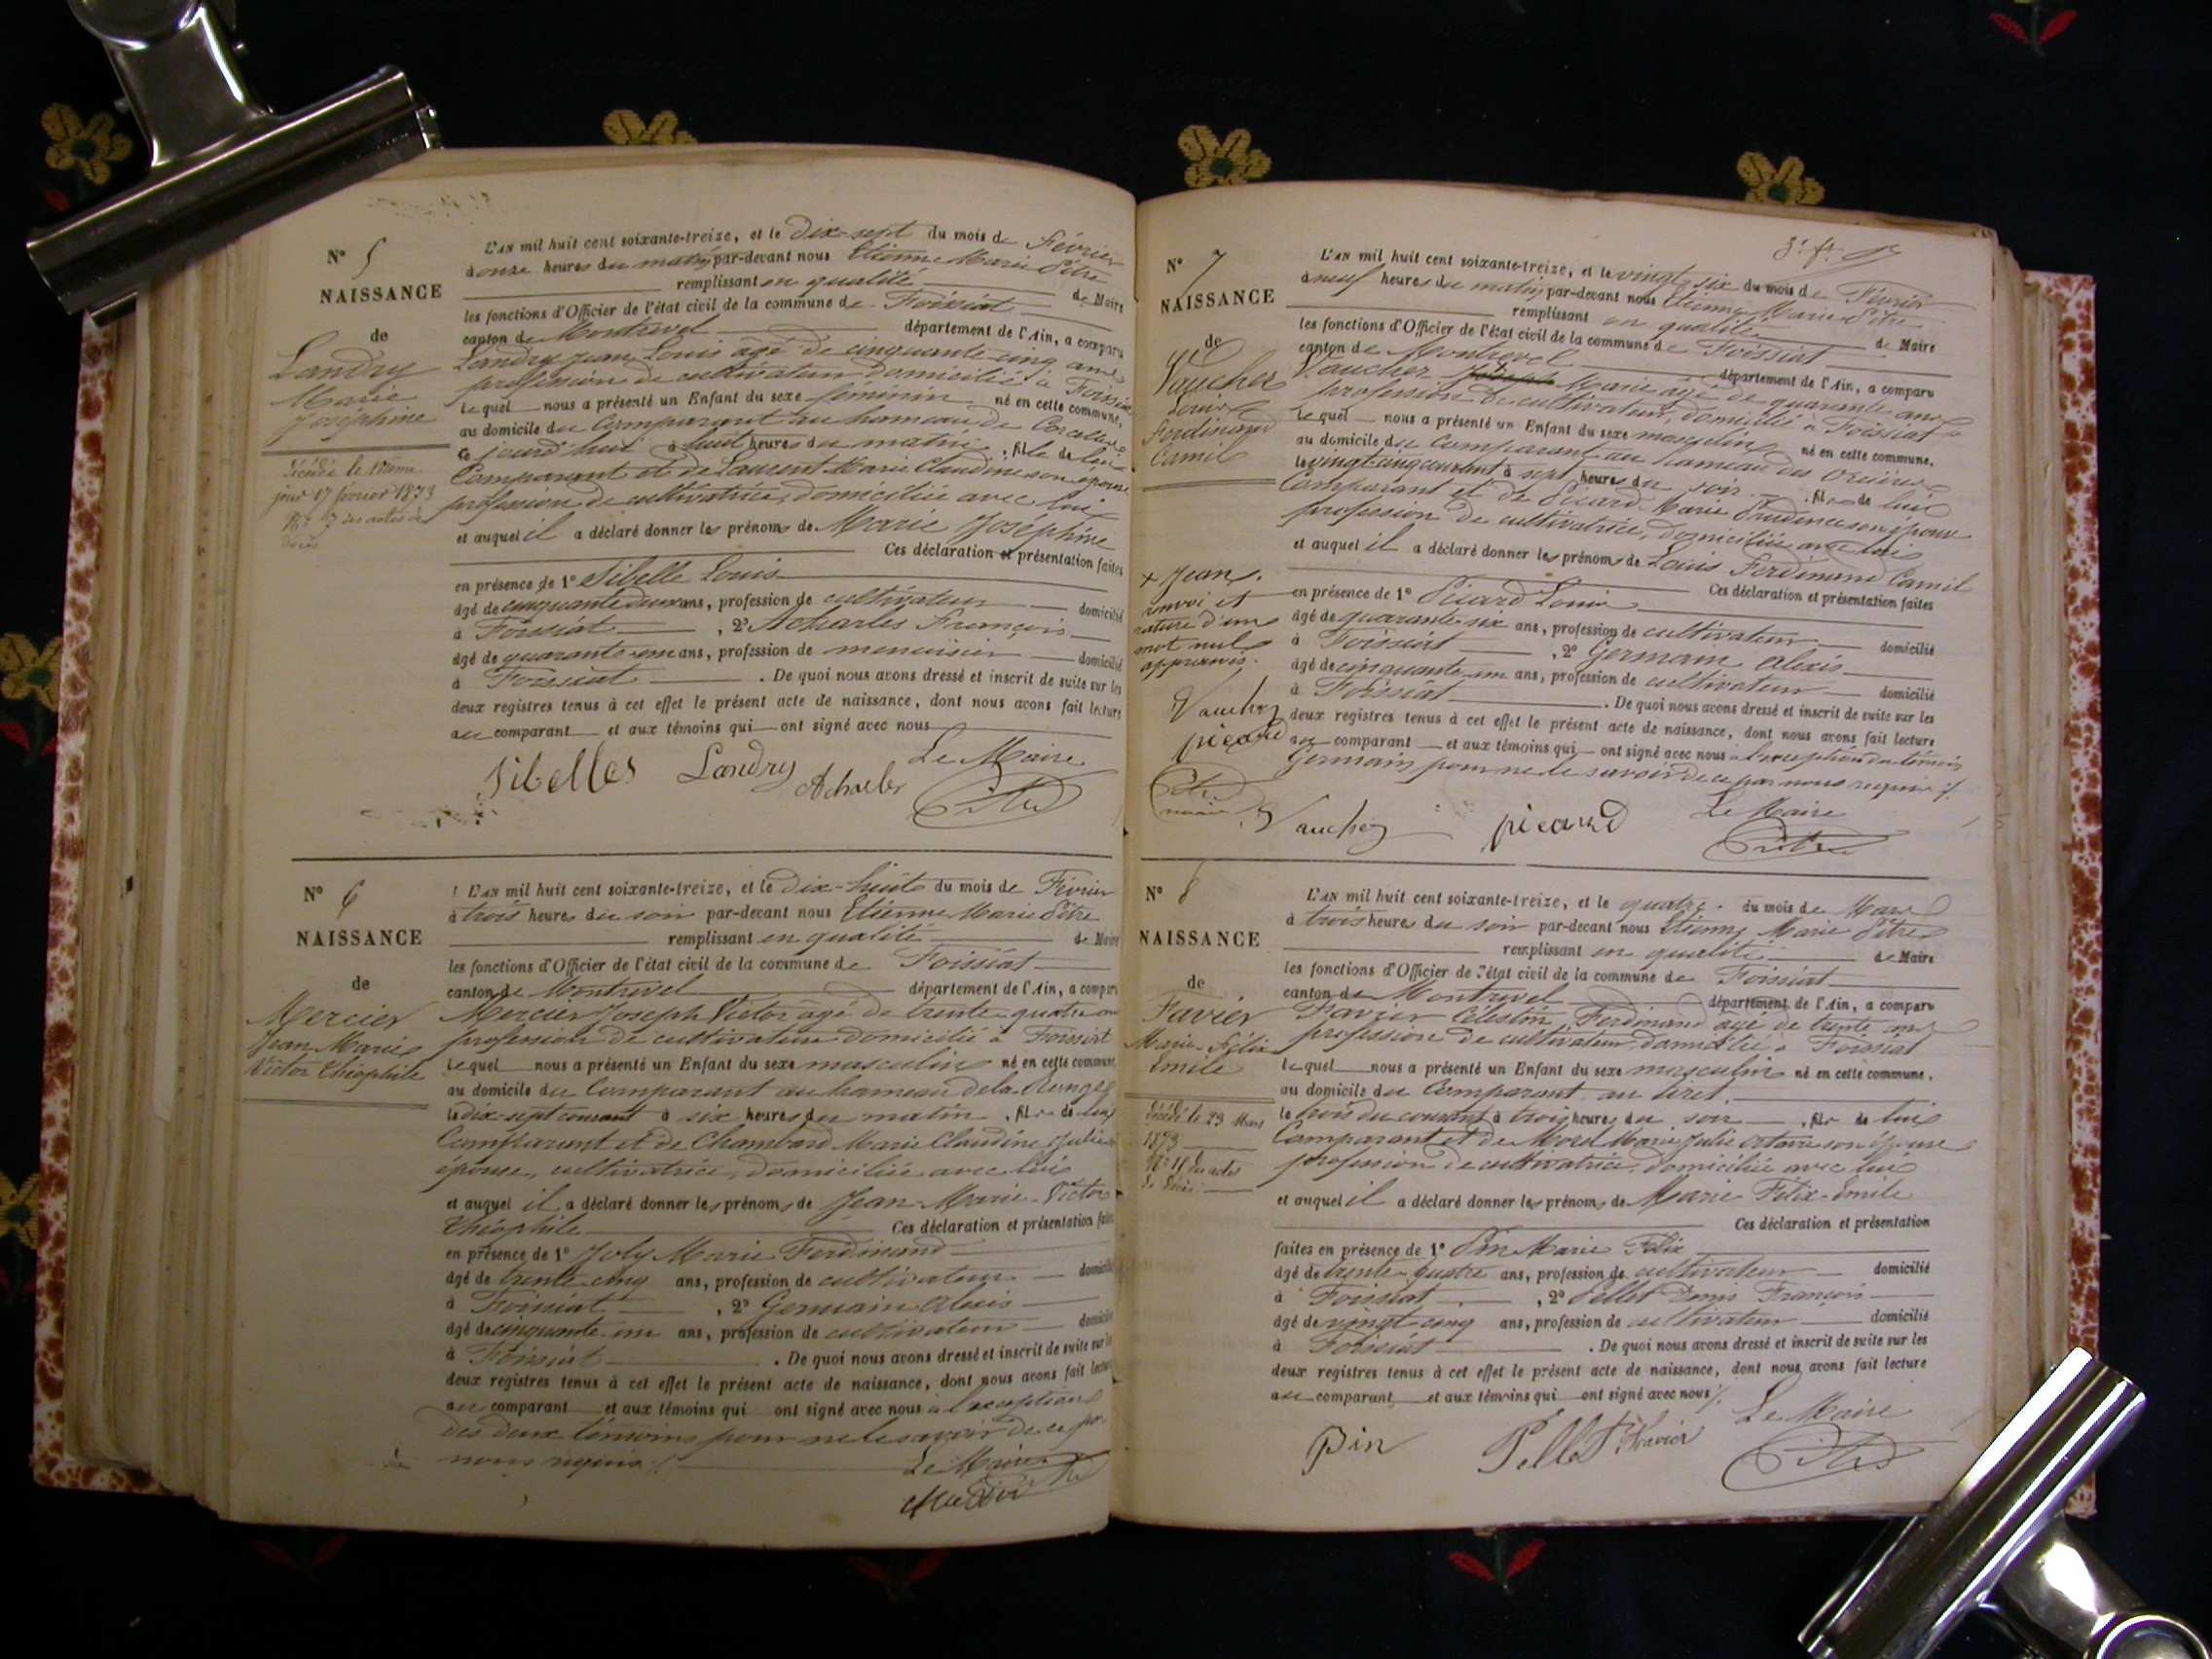 N° 5
NAISSANCE
de
Landry
Marie
Joséphine
décédée le même
jour 17 février 1873
N° 7 des actes de
décès
L'AN mil huit cent soixante-treize, et le Dix-sept du mois de Février
à onze heures du matin par-devant nous Etienne Marie Pitre
remplissant en qualité de Maire
les fonctions d'Officier de l'état civil de la commune de Foissiat
canton de Montrevel département de l'Ain, a comparu
Landry Jean Louis âgé de cinquante-cinq ans
profession de cultivateur domicilié à Foissiat
lequel nous a présenté un Enfant du sexe féminin né en cette commune,
au domicile du Comparant au hameau de
ce jourd'hui à huit heures du matin, fille de lui
Comparant et de Laurent Marie Claudine son épouse
profession de cultivatrice, domiciliée avec lui
et auquel il a déclaré donner les prénoms de Marie Joséphine
Ces déclaration et présentation faites
en présence de 1° Sibelle Louis
âgé de cinquante deux ans, profession de cultivateur domicilié
à Foissiat, 2° Acharles François
âgé de quarante-un ans, profession de menuisier domicilié
à Foissiat. De quoi nous avons dressé et inscrit de suite sur les
deux registres tenus à cet effet le présent acte de naissance, dont nous avons fait lecture
au comparant et aux témoins qui ont signé avec nous
Le Maire
Sibelles Landry Acharles Pitre
N° 6
NAISSANCE
de
Mercier
Jean Marie
Victor Théophile
L'AN mil huit cent soixante-treize, et le Dix-huit du mois de Février
à trois heures du soir par-devant nous Etienne Marie Pitre
remplissant en qualité de Maire
les fonctions d'Officier de l'état civil de la commune de Foissiat
canton de Montrevel département de l'Ain, a comparu
Mercier Joseph Victor âgé de trente-quatre ans
profession de cultivateur domicilié à Foissiat
lequel nous a présenté un Enfant du sexe masculin né en cette commune,
au domicile du Comparant au hameau de la
le dix-sept courant à six heures du matin, fils de lui
Comparant et de Chambard Marie Claudine Julie
épouse, cultivatrice, domiciliée avec lui
et auquel il a déclaré donner les prénoms de Jean-Marie-Victor
Théophile Ces déclaration et présentation faites
en présence de 1° Joly Marie Ferdinand
âgé de trente-cinq ans, profession de cultivateur domicilié
à Foissiat, 2° Germain Alexis
âgé de cinquante-un ans, profession de cultivateur domicilié
à Foissiat. De quoi nous avons dressé et inscrit de suite sur les
deux registres tenus à cet effet le présent acte de naissance, dont nous avons fait lecture
au comparant et aux témoins qui ont signé avec nous à l'exception
des deux témoins pour ne le savoir de ce par
nous requis
Le Maire
3e ft.
N° 7
NAISSANCE
de
Vaucher
Louis
Ferdinand
Camil
+ Jean.
renvoi et
rature d'un
mot nul
approuvés.
Vaucher
picard
Pitre
maire
L'AN mil huit cent soixante-treize, et le vingt-six du mois de Février
à neuf heures du matin par-devant nous Etienne Marie Pitre
remplissant en qualité de Maire
les fonctions d'Officier de l'état civil de la commune de Foissiat
canton de Montrevel département de l'Ain, a comparu
Vaucher Marie âgé de quarante ans
profession de cultivateur, domicilié à Foissiat
lequel nous a présenté un Enfant du sexe masculin né en cette commune,
au domicile du Comparant au hameau des
le vingt-cinq courant à sept heures du soir, fils de lui
Comparant et de Picard Marie Prudence son épouse
profession de cultivatrice, domiciliée avec lui
et auquel il a déclaré donner les prénoms de Louis Ferdinand Camil
Ces déclaration et présentation faites
en présence de 1° Picard Louis
âgé de quarante-six ans, profession de cultivateur domicilié
à Foissiat, 2° Germain Alexis
âgé de cinquante-un ans, profession de cultivateur domicilié
à Foissiat. De quoi nous avons dressé et inscrit de suite sur les
deux registres tenus à cet effet le présent acte de naissance, dont nous avons fait lecture
au comparant et aux témoins qui ont signé avec nous à l'exception du témoin
Germain pour ne le savoir de ce par nous requis
Le Maire
Vaucher picard Pitre
N° 8
NAISSANCE
de
Favier
Marie-Félix
Emile
décédé le 23 Mars
1873
N° 18 des actes
de décès
L'AN mil huit cent soixante-treize, et le quatre du mois de Mars
à trois heures du soir par-devant nous Etienne Marie Pitre
remplissant en qualité de Maire
les fonctions d'Officier de l'état civil de la commune de Foissiat
canton de Montrevel département de l'Ain, a comparu
Favier Célestin Ferdinand âgé de trente ans
profession de cultivateur domicilié à Foissiat
lequel nous a présenté un Enfant du sexe masculin né en cette commune,
au domicile du Comparant au
le trois du courant à trois heures du soir, fils de lui
Comparant et de Morel Marie Julie Octavie son épouse
profession de cultivatrice domiciliée avec lui
et auquel il a déclaré donner les prénoms de Marie Félix-Emile
Ces déclaration et présentation
faites en présence de 1° Pin Marie Félix
âgé de trente-quatre ans, profession de cultivateur domicilié
à Foissiat, 2° Pellet Denis François
âgé de vingt-cinq ans, profession de cultivateur domicilié
à Foissiat. De quoi nous avons dressé et inscrit de suite sur les
deux registres tenus à cet effet le présent acte de naissance, dont nous avons fait lecture
au comparant et aux témoins qui ont signé avec nous
Le Maire
Pin Pellet Favier Pitre